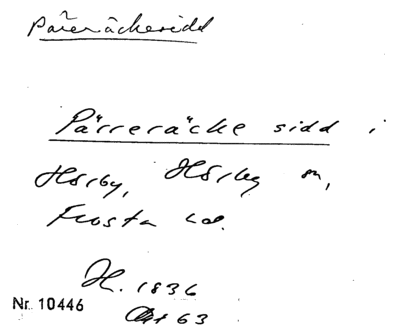 Pärreräckesidd
Pärreräcke sidd i
Hörby, Hörby sn,
Frosta hd.
H. 1836
Nr. 10446
63